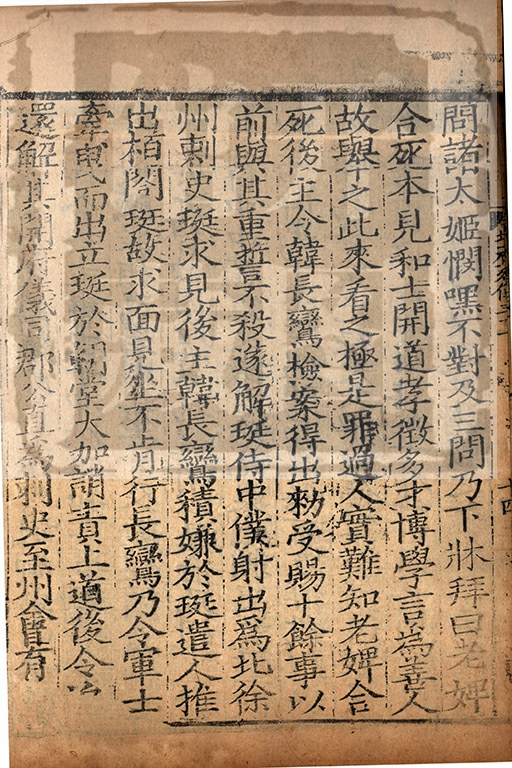 問諸太姬憫嘿不對及三問乃下牀拜曰老婢
合死本見和士開道孝徵多才博學言為善人
故舉之此來看之極是罪過人實難知老婢合
死後主令韓長鸞檢案得出勑受賜十餘事以
前與其重誓不殺遂解珽侍中僕射出為北徐
州刺史珽求見後主韓長鸞積嫌於珽遣人推
出栢閤珽故求面見坐不肯行長鸞乃令軍士
牽曳而出立珽於朝堂大加誚責上道後令
還解其開府儀同郡公直為刺史至州會有
十四